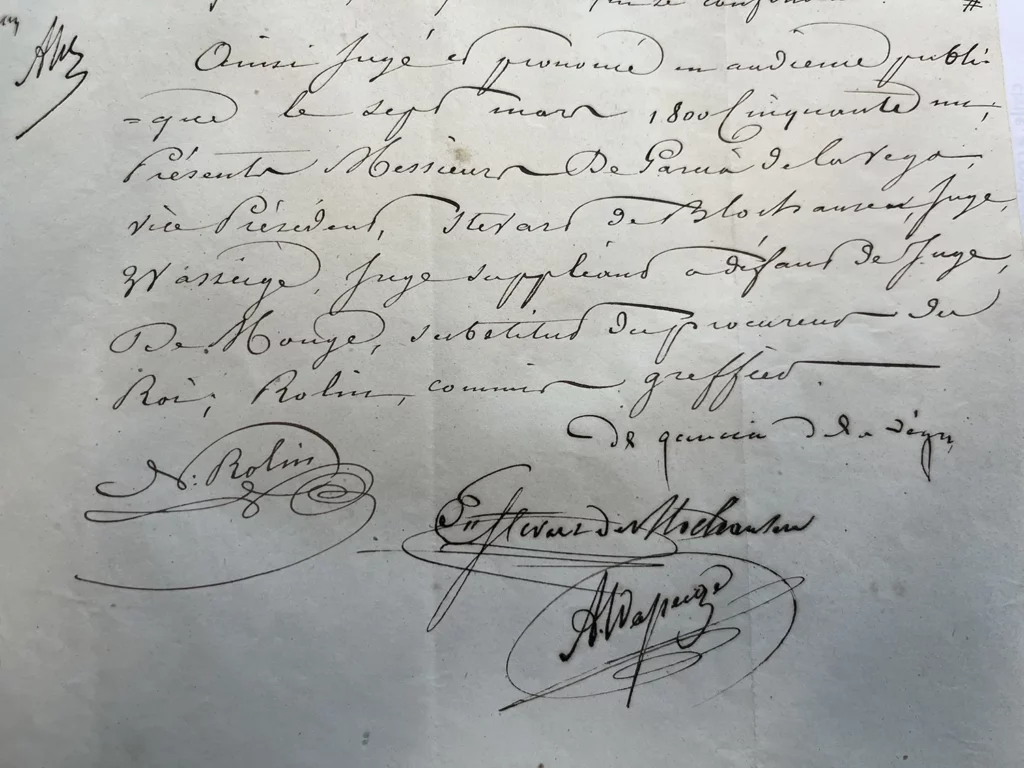 Ainsi Jugé et prononcé en audience publi-
=que le sept mars 1800 Cinquante un,
Présents Messieurs De Garcia de la Vega,
vice Président, Stevart de Blochausen, Juge,
Wasseige, Juge suppléant a défaut de Juge,
De Mouge, substitut du procureur du
Roi, Rolin, commis greffier.
de garcia de la véga
N. Rolin
Stevart de Blochausen
A. Wasseige